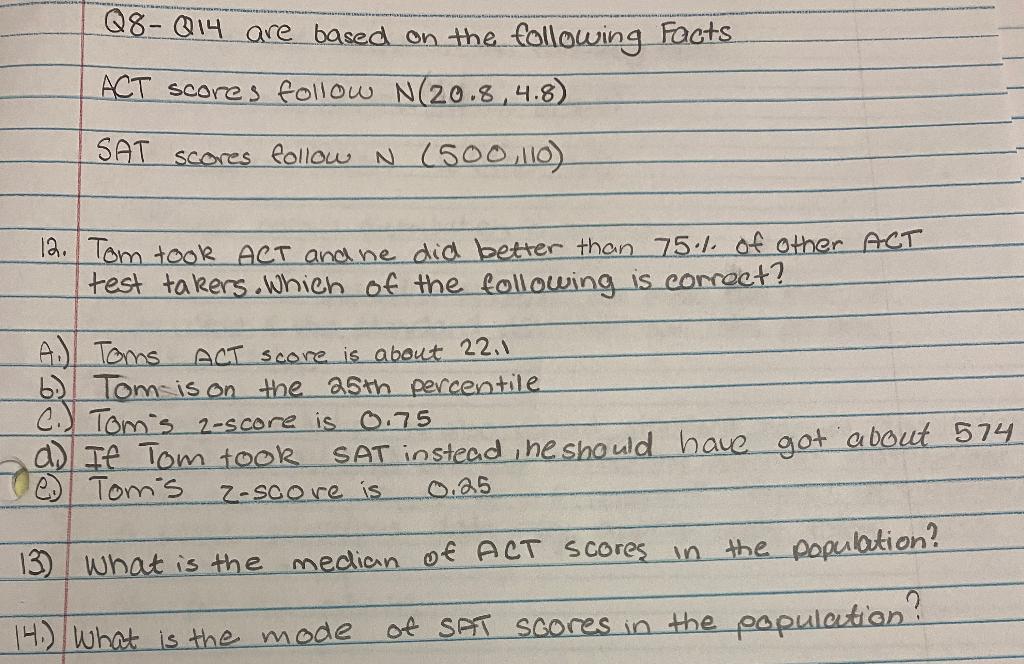 Q8-Q14 are based on the following Facts
ACT scores follow N(20.8, 4.8)
SAT scores follow N (500,110)
12. Tom took ACT and he did better than 75% of other ACT
test takers. Which of the following is correct?
A.) Toms ACT score is about 22.1
b.) Tom is on the 25th percentile
C.) Tom's z-score is 0.75
d.) If Tom took SAT instead, he should have got about 574
e.) Tom's z-score is 0.25
13) What is the median of ACT scores in the population?
14.) What is the mode of SAT scores in the population?